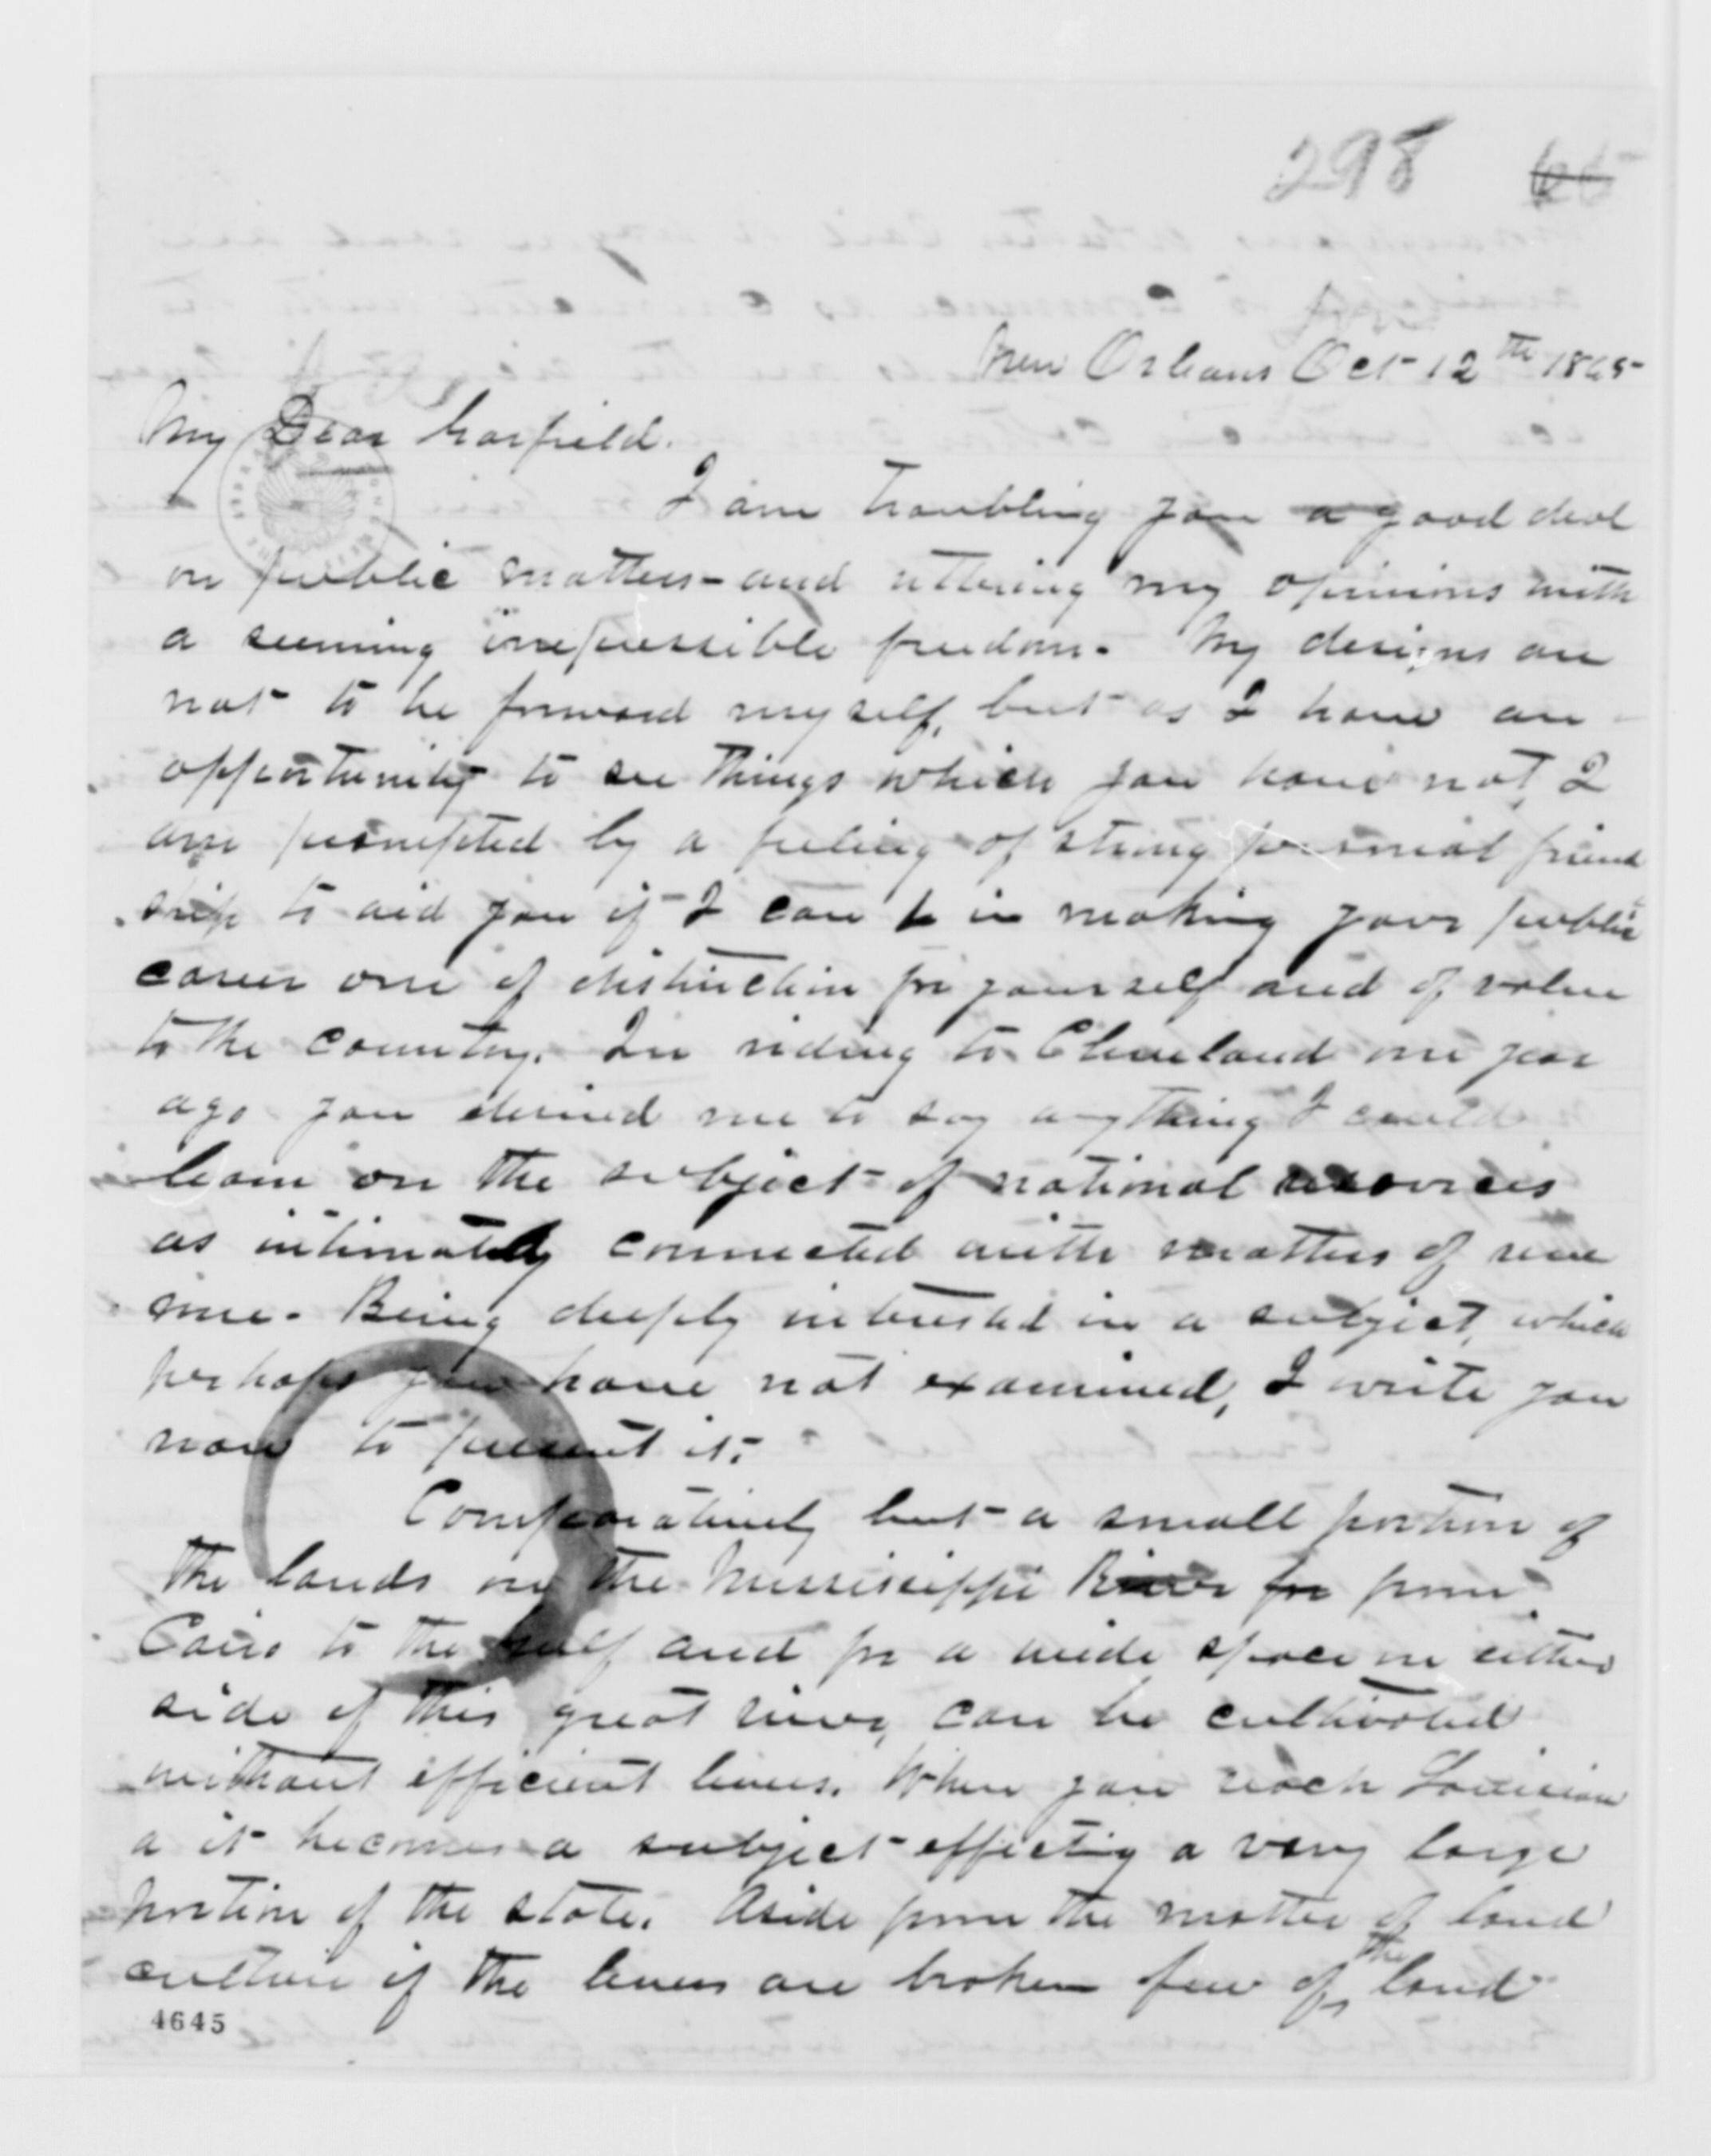 298
New Orleans Oct 12th 1865
My Dear Garfield.
I am troubling you a good deal
on public matters - and uttering my opinions with
a seeming irrepressible freedom. My designs are
not to be forward myself, but as I have an
opportunity to see things which you have not, I
am prompted by a feeling of strong personal friend
ship to aid you if I can in making your public
career one of distinction for yourself and of value
to the country. In riding to Cleveland one year
ago you desired me to say anything I could
learn on the subject of national resources
as intimately connected with matters of reve
nue. Being deeply interested in a subject, which
perhaps you have not examined, I write you
now to present it.
Comparatively but a small portion of
the lands on the Mississippi River for from
Cairo to the Gulf and for a wide space on either
side of this great river, can be cultivated
without efficient levees. When you reach Louisian
a it becomes a subject effecting a very large
portion of the state. Aside from the matter of land
culture if the levees are broken few of the land
4645